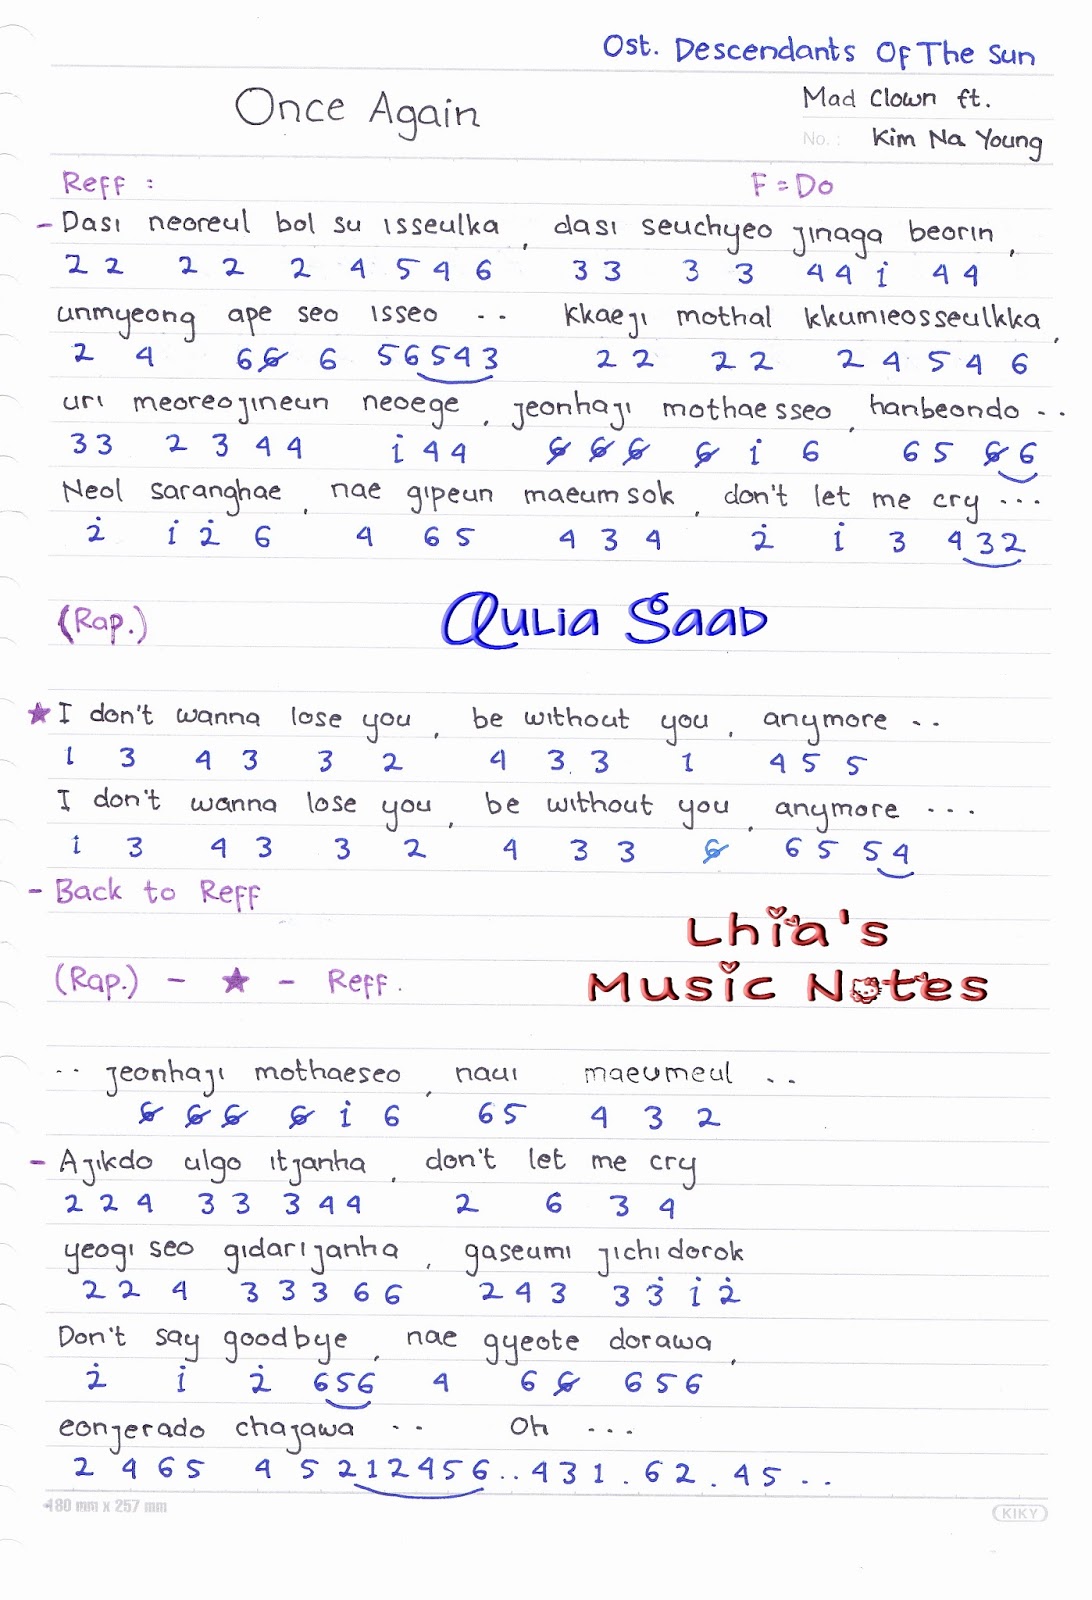 Ost. Descendants Of The Sun
Once Again
Mad Clown ft.
No. : Kim Na Young
Reff : F = Do
- Dasi neoreul bol su isseulka , dasi seuchyeo jinaga beorin ,
2 2 2 2 2 4 5 4 6 3 3 3 3 4 4 i 4 4
unmyeong ape seo isseo .. kkaeji mothal kkumieosseulkka ,
2 4 6 6̸ 6 5 6 5 4 3 2 2 2 2 2 4 5 4 6
uri meoreojineun neoege , jeonhaji mothaesseo , hanbeondo ..
3 3 2 3 4 4 i 4 4 6̸ 6̸ 6̸ 6̸ i 6 6 5 6̸ 6
Neol saranghae , nae gipeun maeumsok , don't let me cry ...
2̇ i 2̇ 6 4 6 5 4 3 4 2̇ i 3 4 3 2
(Rap.) Aulia Saad
★ I don't wanna lose you , be without you , anymore ..
1 3 4 3 3 2 4 3 . 3 1 4 5 5
I don't wanna lose you , be without you , anymore ...
i 3 4 3 3 2 4 3 3 6̸ 6 5 5 4
- Back to Reff
Lhia's
(Rap.) - ★ - Reff.
Music Notes
.. jeonhaji mothaeseo , naui maeumeul ..
6̸ 6̸ 6̸ 6̸ i 6 6 5 4 3 2
- Ajikdo ulgo itjanha , don't let me cry
2 2 4 3 3 3 4 4 2 6 3 4
yeogi seo gidarijanha , gaseumi jichidorok
2 2 4 3 3 3 6 6 2 4 3 3 3̇ i 2̇
Don't say goodbye , nae gyeote dorawa ,
2̇ i 2̇ 6 5 6 4 6 6̸ 6 5 6
eonjerado chajawa .. Oh ...
2 4 6 5 4 5 2 1 2 4 5 6 .. 4 3 1 . 6 2 . 4 5 ..
180 mm x 257 mm KIKY